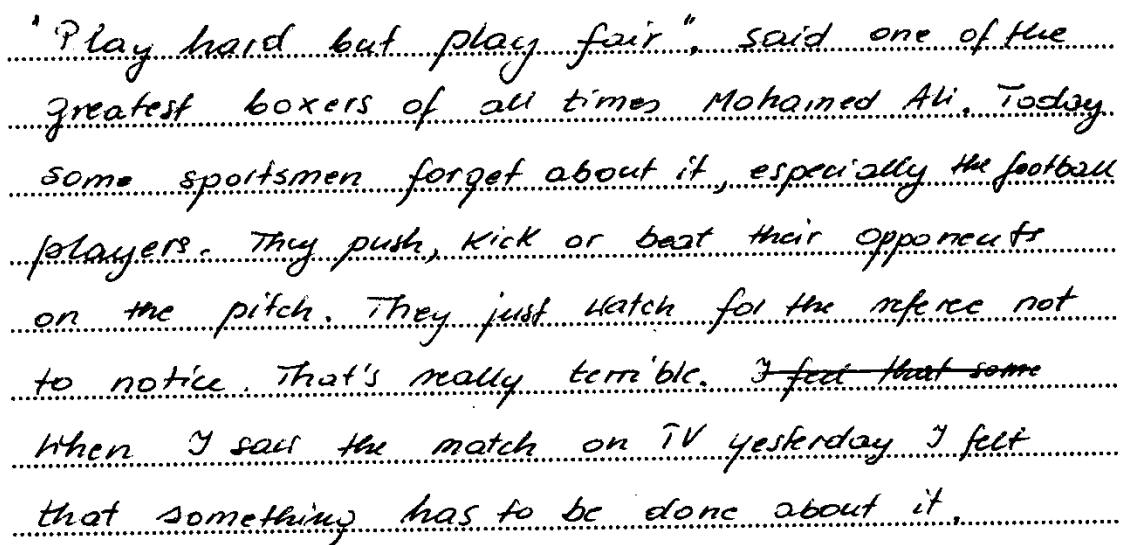 "Play hard but play fair", said one of the
greatest boxers of all times Mohamed Ali. Today
some sportsmen forget about it, especially the football
players. They push, kick or beat their opponents
on the pitch. They just watch for the referee not
to notice. That's really terrible. I feel that some
When I saw the match on TV yesterday I felt
that something has to be done about it.